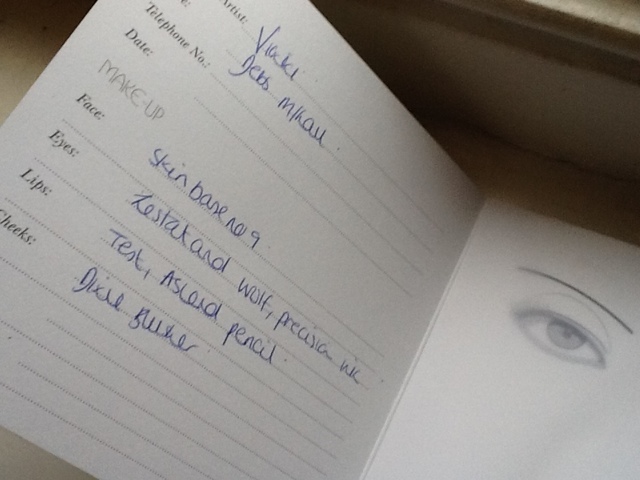 Artist: Vicki
Telephone No.: Debs
Date:
MAKE-UP
Face: Skin base no 9
Eyes: and wolf, precision ink
Lips: Test, Ascend pencil.
Cheeks: Dixie Blusher